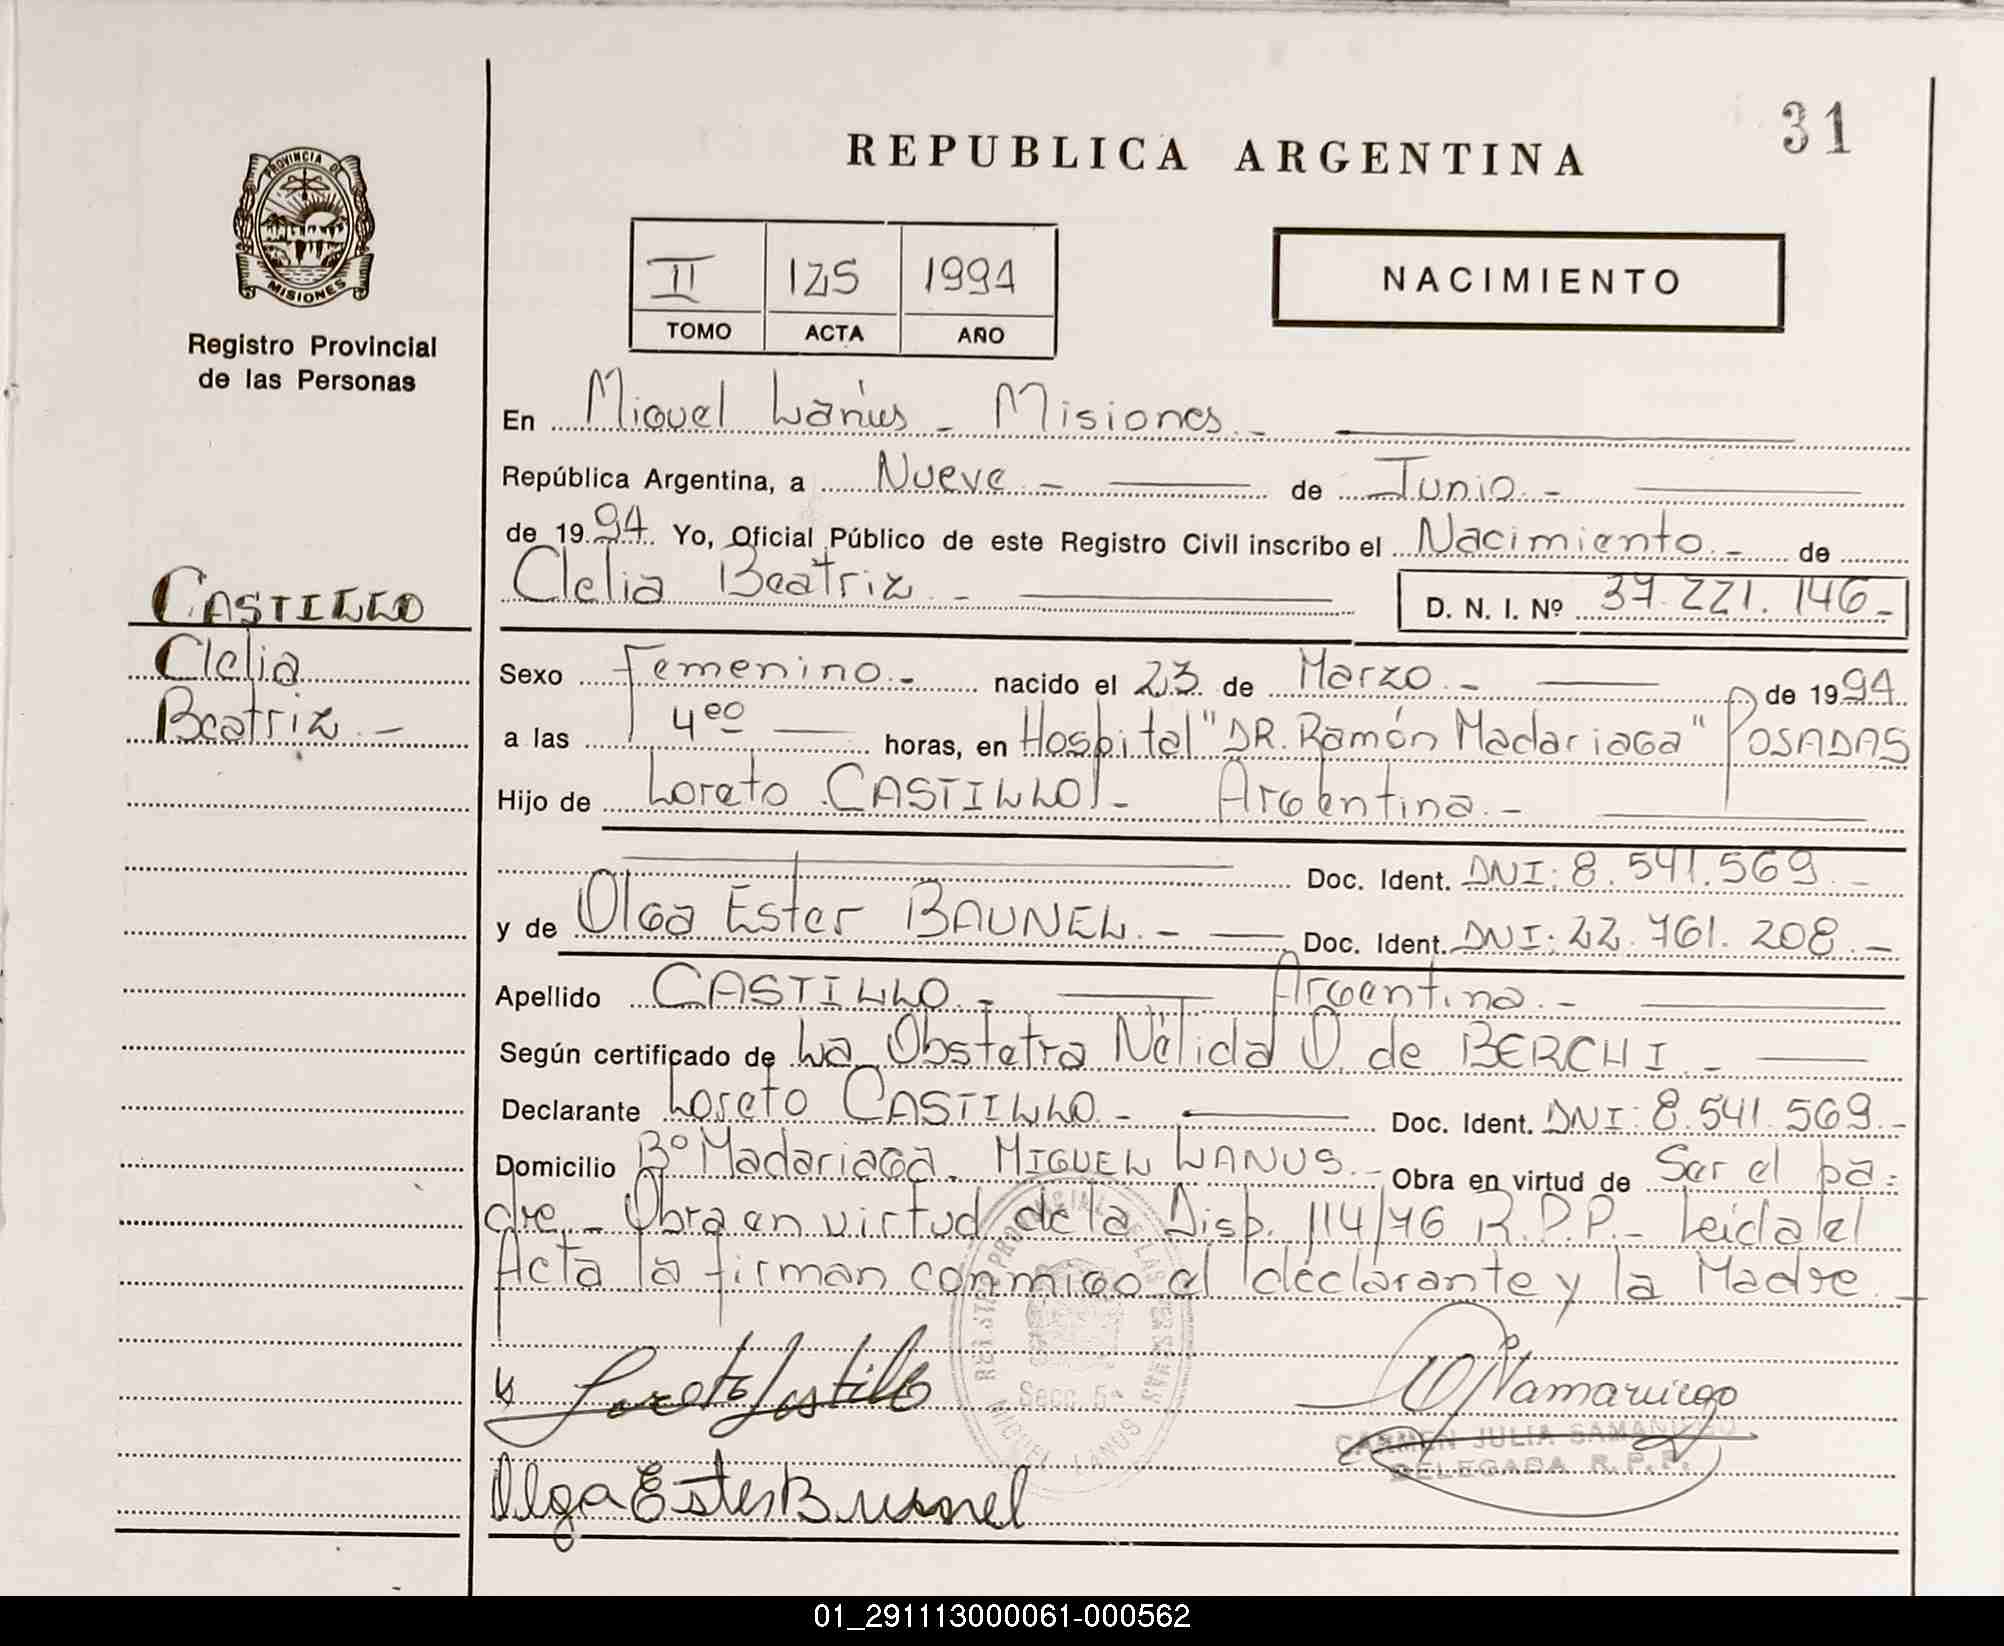 31
REPUBLICA ARGENTINA
PROVINCIA DE
MISIONES
Registro Provincial
de las Personas
II 125 1994
TOMO ACTA AÑO
NACIMIENTO
En Miguel Lanús - Misiones. -
República Argentina, a Nueve. - de Junio. -
de 1994 Yo, Oficial Público de este Registro Civil inscribo el Nacimiento. - de
CASTILLO
Clelia
Beatriz. -
Clelia Beatriz. - D. N. I. Nº 37.221.146 -
Sexo Femenino. - nacido el 23 de Marzo. - de 1994
a las 4 00 horas, en Hospital "DR. Ramón Madariaga" POSADAS
Hijo de Loreto CASTILLO. - Argentina. -
Doc. Ident. DNI: 8.541.569. -
y de Olga Ester BAUNEL. - Doc. Ident. DNI: 22.761.208. -
Apellido CASTILLO. - Argentina. -
Según certificado de La Obstetra Nélida O. de BERCHI. -
Declarante Loreto CASTILLO. - Doc. Ident. DNI: 8.541.569. -
Domicilio Bº Madariaga. MIGUEL LANUS. - Obra en virtud de Ser el pa=
dre. - Obra en virtud de la Disp. 114/76 R.P.P. - Leida el
Acta la firman conmigo el declarante y la Madre. -
REGISTRO PROVINCIAL DE LAS PERSONAS
Secc. 5ª
MIGUEL LANUS
Loreto Castillo
CARMEN JULIA SAMANIEGO
DELEGADA R.P.P.
Olga Ester Brusnel
01_291113000061-000562